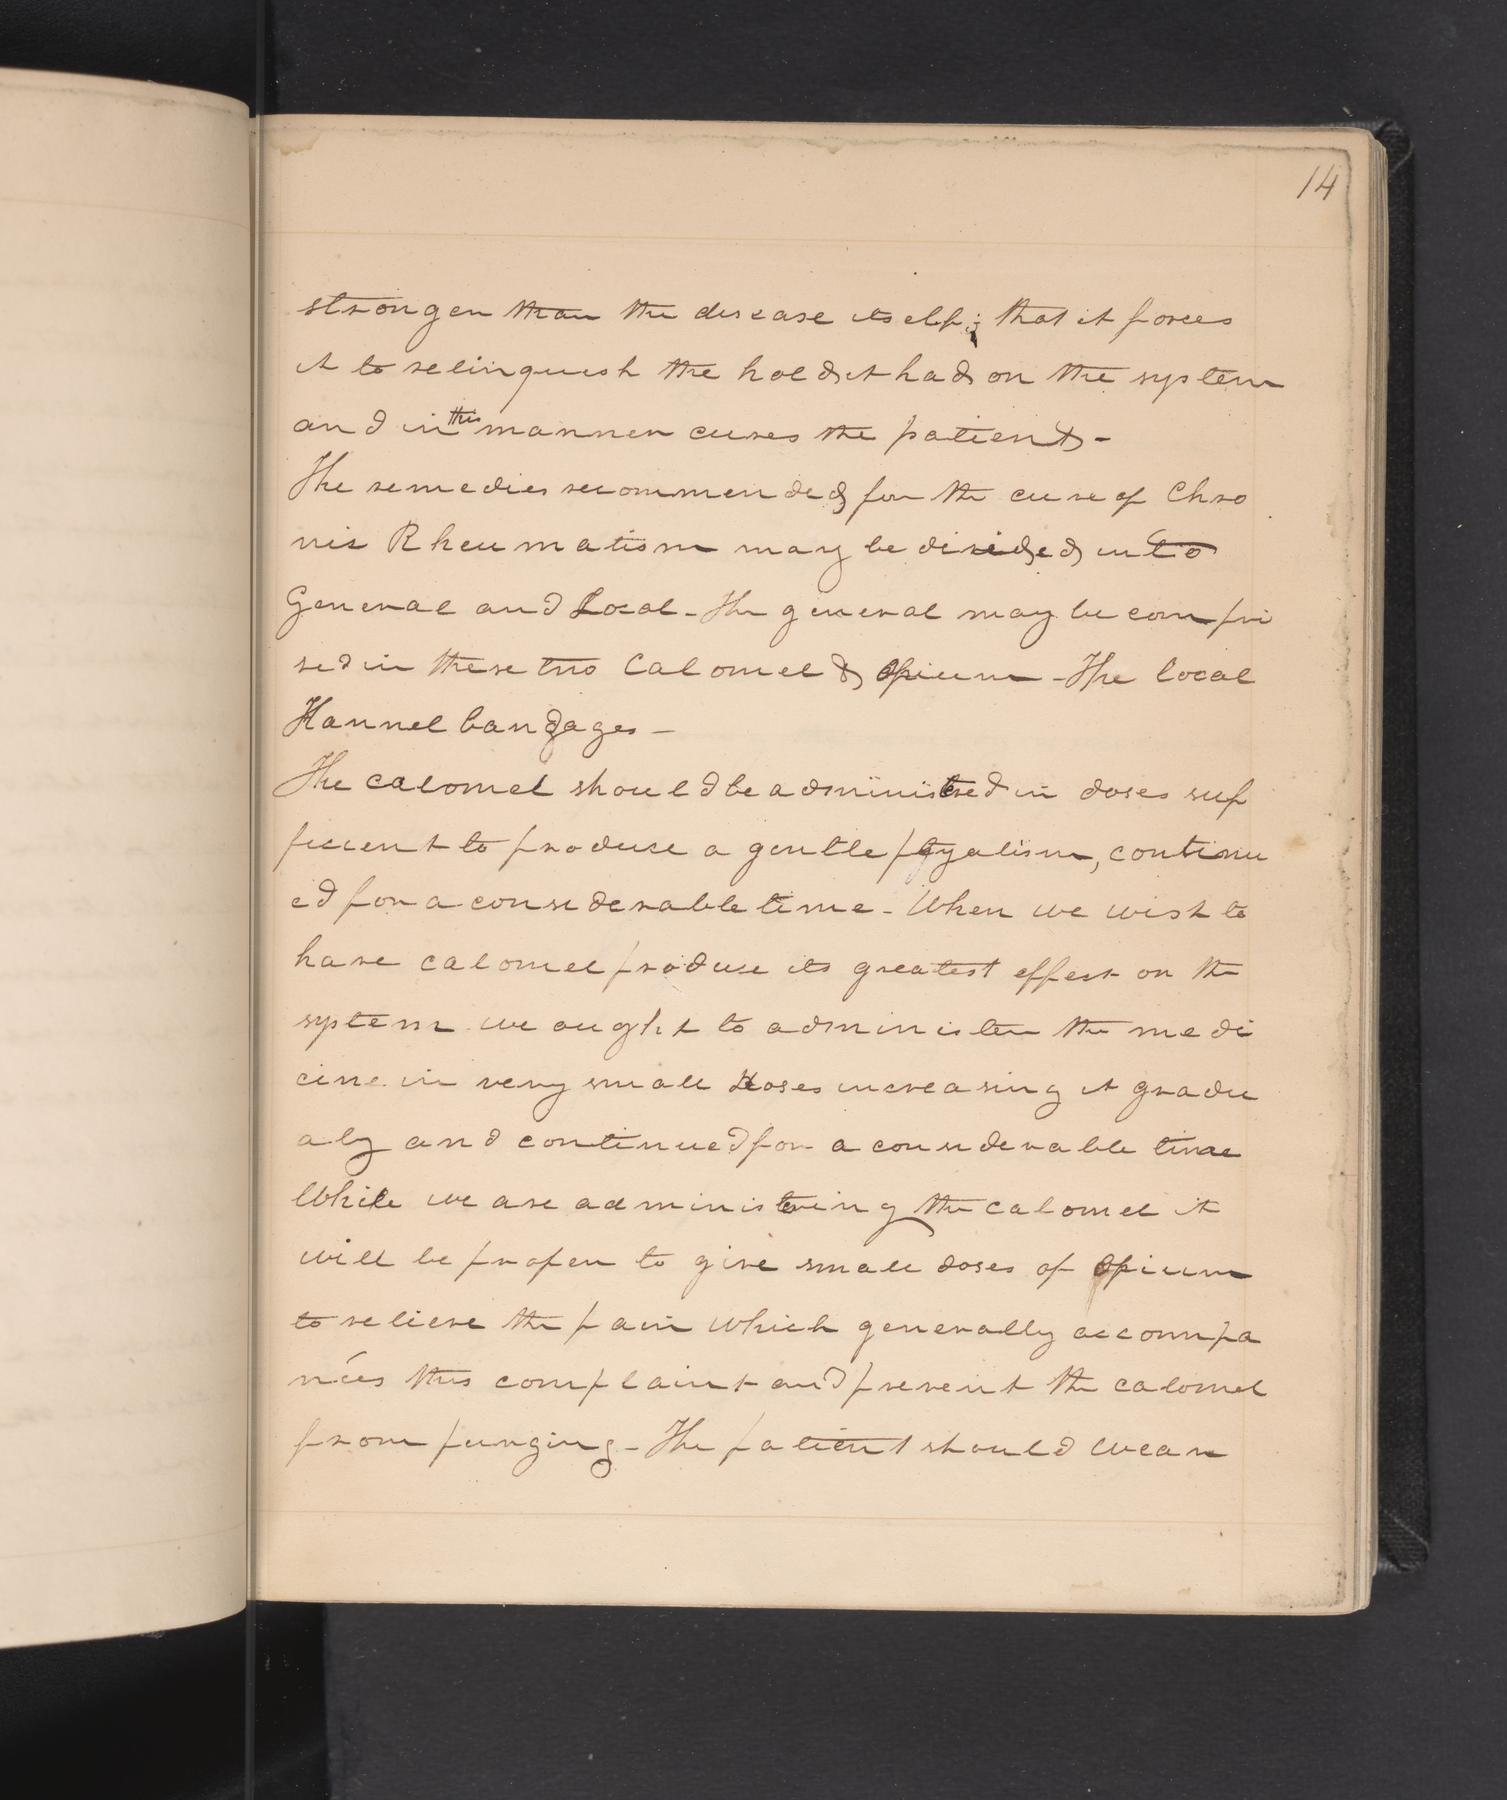 14
stronger than the disease itself; that it forces
it to relinquish the hold it had on the system
and in this manner cures the patient -
The remedies recommended for the cure of Chro
nic Rheumatism may be divided into
General and Local - The general may be compri
sed in these two Calomel & Opium - The local
Flannel bandages -
The calomel should be administred in doses suf
ficient to produce a gentle ptyalism, continu
ed for a considerable time - When we wish to
have calomel produce its greatest effect on the
system we ought to administer the medi
cine in very small doses increasing it gradu
aly and continued for a considerable time
While we are administering the calomel it
will be proper to give small doses of Opium
to relieve the pain which generally accompa
nies this complaint and prevent the calomel
from purging - The patient should wear